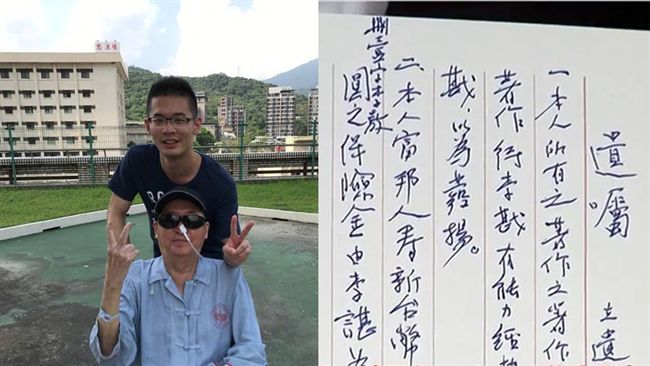 遺囑。
立遺
一本人所有之著作之著作
著作待李戡有能力經
戡,以為發揚。
二、本人富邦人壽新台幣
圓之保險金由李諶為
李敖